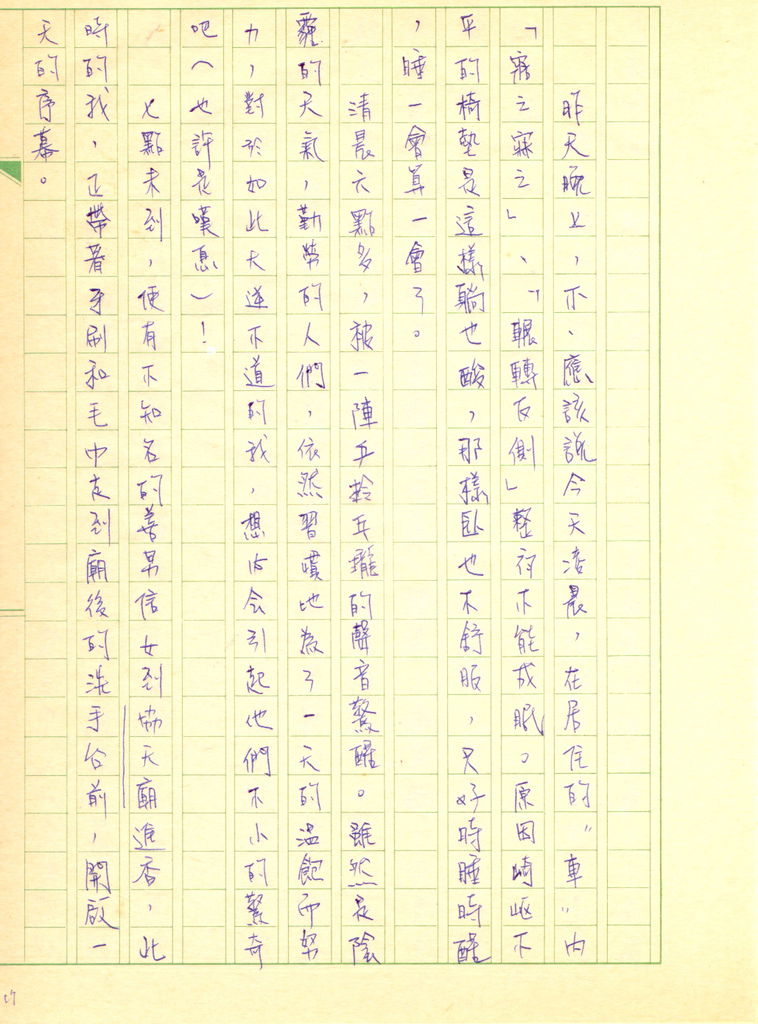 昨天晚上,不、應該說今天凌晨,在居住的〝車〞內
「寤之寐之」、「輾轉反側」整夜不能成眠。原因崎嶇不
平的椅墊是這樣躺也酸,那樣臥也不舒服,只好時睡時醒
,睡一會算一會了。
清晨六點多,被一陣乒鈴乓瓏的聲音驚醒。雖然是陰
霾的天氣,勤勞的人們,依然習慣地為了一天的溫飽而努
力,對於如此大逆不道的我,想必會引起他們不小的驚奇
吧(也許是嘆息)!
七點未到,便有不知名的善男信女到協天廟進香,此
時的我,正帶著牙刷和毛巾走到廟後的洗手台前,開啟一
天的序幕。